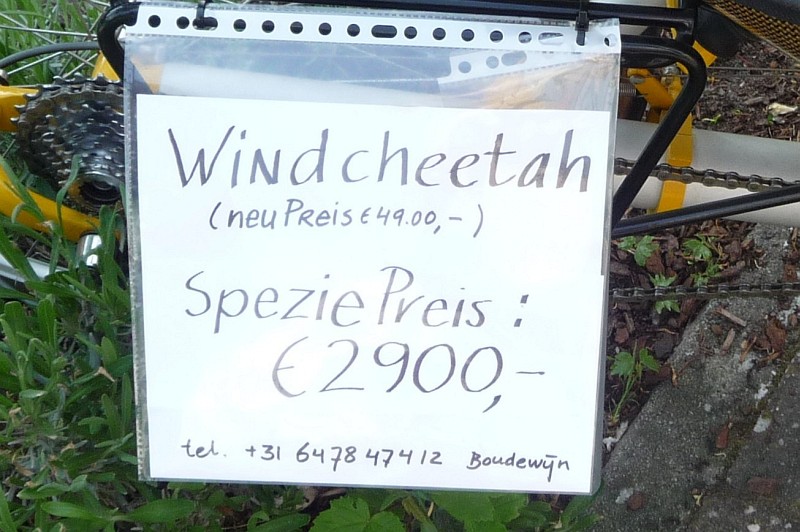 Windcheetah
(neu Preis €49.00,-)
Spezie Preis :
€2900,-
tel. +31 647847412 Boudewijn